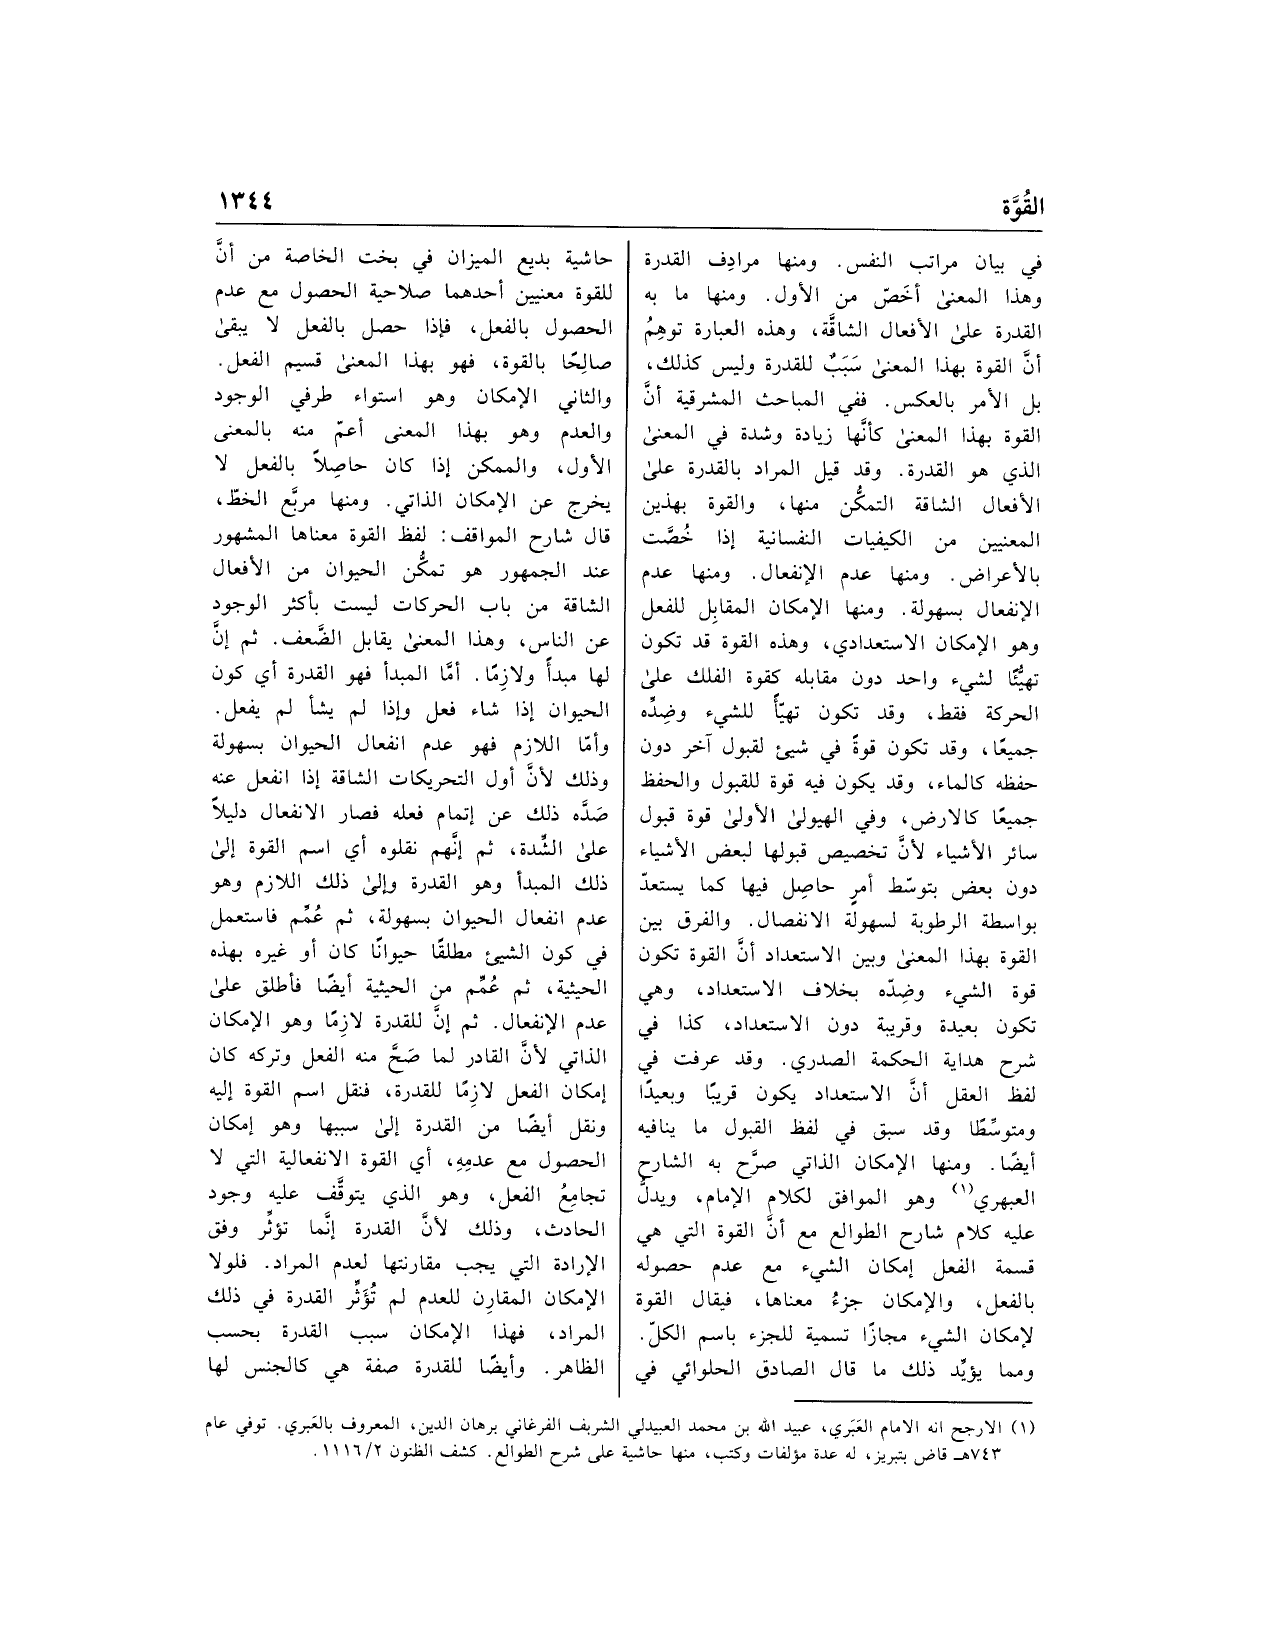 القُوَّة
١٣٤٤
في بيان مراتب النفس. ومنها مرادِف القدرة
وهذا المعنىٰ أخَصّ من الأول. ومنها ما به
القدرة علىٰ الأفعال الشاقَّة، وهذه العبارة توهِمُ
أنَّ القوة بهذا المعنىٰ سَبَبٌ للقدرة وليس كذلك،
بل الأمر بالعكس. ففي المباحث المشرقية أنَّ
القوة بهذا المعنىٰ كأنَّها زيادة وشدة في المعنىٰ
الذي هو القدرة. وقد قيل المراد بالقدرة علىٰ
الأفعال الشاقة التمكُّن منها، والقوة بهذين
المعنيين من الكيفيات النفسانية إذا خُصَّت
بالأعراض. ومنها عدم الإنفعال. ومنها عدم
الإنفعال بسهولة. ومنها الإمكان المقابِل للفعل
وهو الإمكان الاستعدادي، وهذه القوة قد تكون
تهيُّئًا لشيء واحد دون مقابله كقوة الفلك علىٰ
الحركة فقط، وقد تكون تهيّأً للشيء وضِدِّه
جميعًا، وقد تكون قوةً في شيئ لقبول آخر دون
حفظه كالماء، وقد يكون فيه قوة للقبول والحفظ
جميعًا كالارض، وفي الهيولىٰ الأولىٰ قوة قبول
سائر الأشياء لأنَّ تخصيص قبولها لبعض الأشياء
دون بعض بتوسّط أمرٍ حاصِل فيها كما يستعدّ
بواسطة الرطوبة لسهولة الانفصال. والفرق بين
القوة بهذا المعنىٰ وبين الاستعداد أنَّ القوة تكون
قوة الشيء وضِدّه بخلاف الاستعداد، وهي
تكون بعيدة وقريبة دون الاستعداد، كذا في
شرح هداية الحكمة الصدري. وقد عرفت في
لفظ العقل أنَّ الاستعداد يكون قريبًا وبعيدًا
ومتوسِّطًا وقد سبق في لفظ القبول ما ينافيه
أيضًا. ومنها الإمكان الذاتي صرَّح به الشارح
العبهري(١) وهو الموافق لكلام الإمام، ويدلُّ
عليه كلام شارح الطوالع مع أنَّ القوة التي هي
قسمة الفعل إمكان الشيء مع عدم حصوله
بالفعل، والإمكان جزءُ معناها، فيقال القوة
لإمكان الشيء مجازًا تسمية للجزء باسم الكلّ.
ومما يؤيِّد ذلك ما قال الصادق الحلوائي في
حاشية بديع الميزان في بخت الخاصة من أنَّ
للقوة معنيين أحدهما صلاحية الحصول مع عدم
الحصول بالفعل، فإذا حصل بالفعل لا يبقىٰ
صالِحًا بالقوة، فهو بهذا المعنىٰ قسيم الفعل.
والثاني الإمكان وهو استواء طرفي الوجود
والعدم وهو بهذا المعنى أعمّ منه بالمعنى
الأول، والممكن إذا كان حاصِلاً بالفعل لا
يخرج عن الإمكان الذاتي. ومنها مربَّع الخطّ،
قال شارح المواقف: لفظ القوة معناها المشهور
عند الجمهور هو تمكُّن الحيوان من الأفعال
الشاقة من باب الحركات ليست بأكثر الوجود
عن الناس، وهذا المعنىٰ يقابل الضَّعف. ثم إنَّ
لها مبدأً ولازِمًا. أمَّا المبدأ فهو القدرة أي كون
الحيوان إذا شاء فعل وإذا لم يشأ لم يفعل.
وأمّا اللازم فهو عدم انفعال الحيوان بسهولة
وذلك لأنَّ أول التحريكات الشاقة إذا انفعل عنه
صَدَّه ذلك عن إتمام فعله فصار الانفعال دليلاً
علىٰ الشِّدة، ثم إنَّهم نقلوه أي اسم القوة إلىٰ
ذلك المبدأ وهو القدرة وإلىٰ ذلك اللازم وهو
عدم انفعال الحيوان بسهولة، ثم عُمِّم فاستعمل
في كون الشيئ مطلقًا حيوانًا كان أو غيره بهذه
الحيثية، ثم عُمِّم من الحيثية أيضًا فأطلق علىٰ
عدم الإنفعال. ثم إنَّ للقدرة لازِمًا وهو الإمكان
الذاتي لأنَّ القادر لما صَحَّ منه الفعل وتركه كان
إمكان الفعل لازِمًا للقدرة، فنقل اسم القوة إليه
ونقل أيضًا من القدرة إلىٰ سببها وهو إمكان
الحصول مع عدمِهِ، أي القوة الانفعالية التي لا
تجامِعُ الفعل، وهو الذي يتوقَّف عليه وجود
الحادث، وذلك لأنَّ القدرة إنَّما تؤثِّر وفق
الإرادة التي يجب مقارنتها لعدم المراد. فلولا
الإمكان المقارِن للعدم لم تُؤَثِّر القدرة في ذلك
المراد، فهذا الإمكان سبب القدرة بحسب
الظاهر. وأيضًا للقدرة صفة هي كالجنس لها
(١) الارجح انه الامام العَبَري، عبيد الله بن محمد العبيدلي الشريف الفرغاني برهان الدين، المعروف بالعَبري. توفي عام
٧٤٣هـ قاض بتبريز، له عدة مؤلفات وكتب، منها حاشية على شرح الطوالع. كشف الظنون ١١١٦/٢.